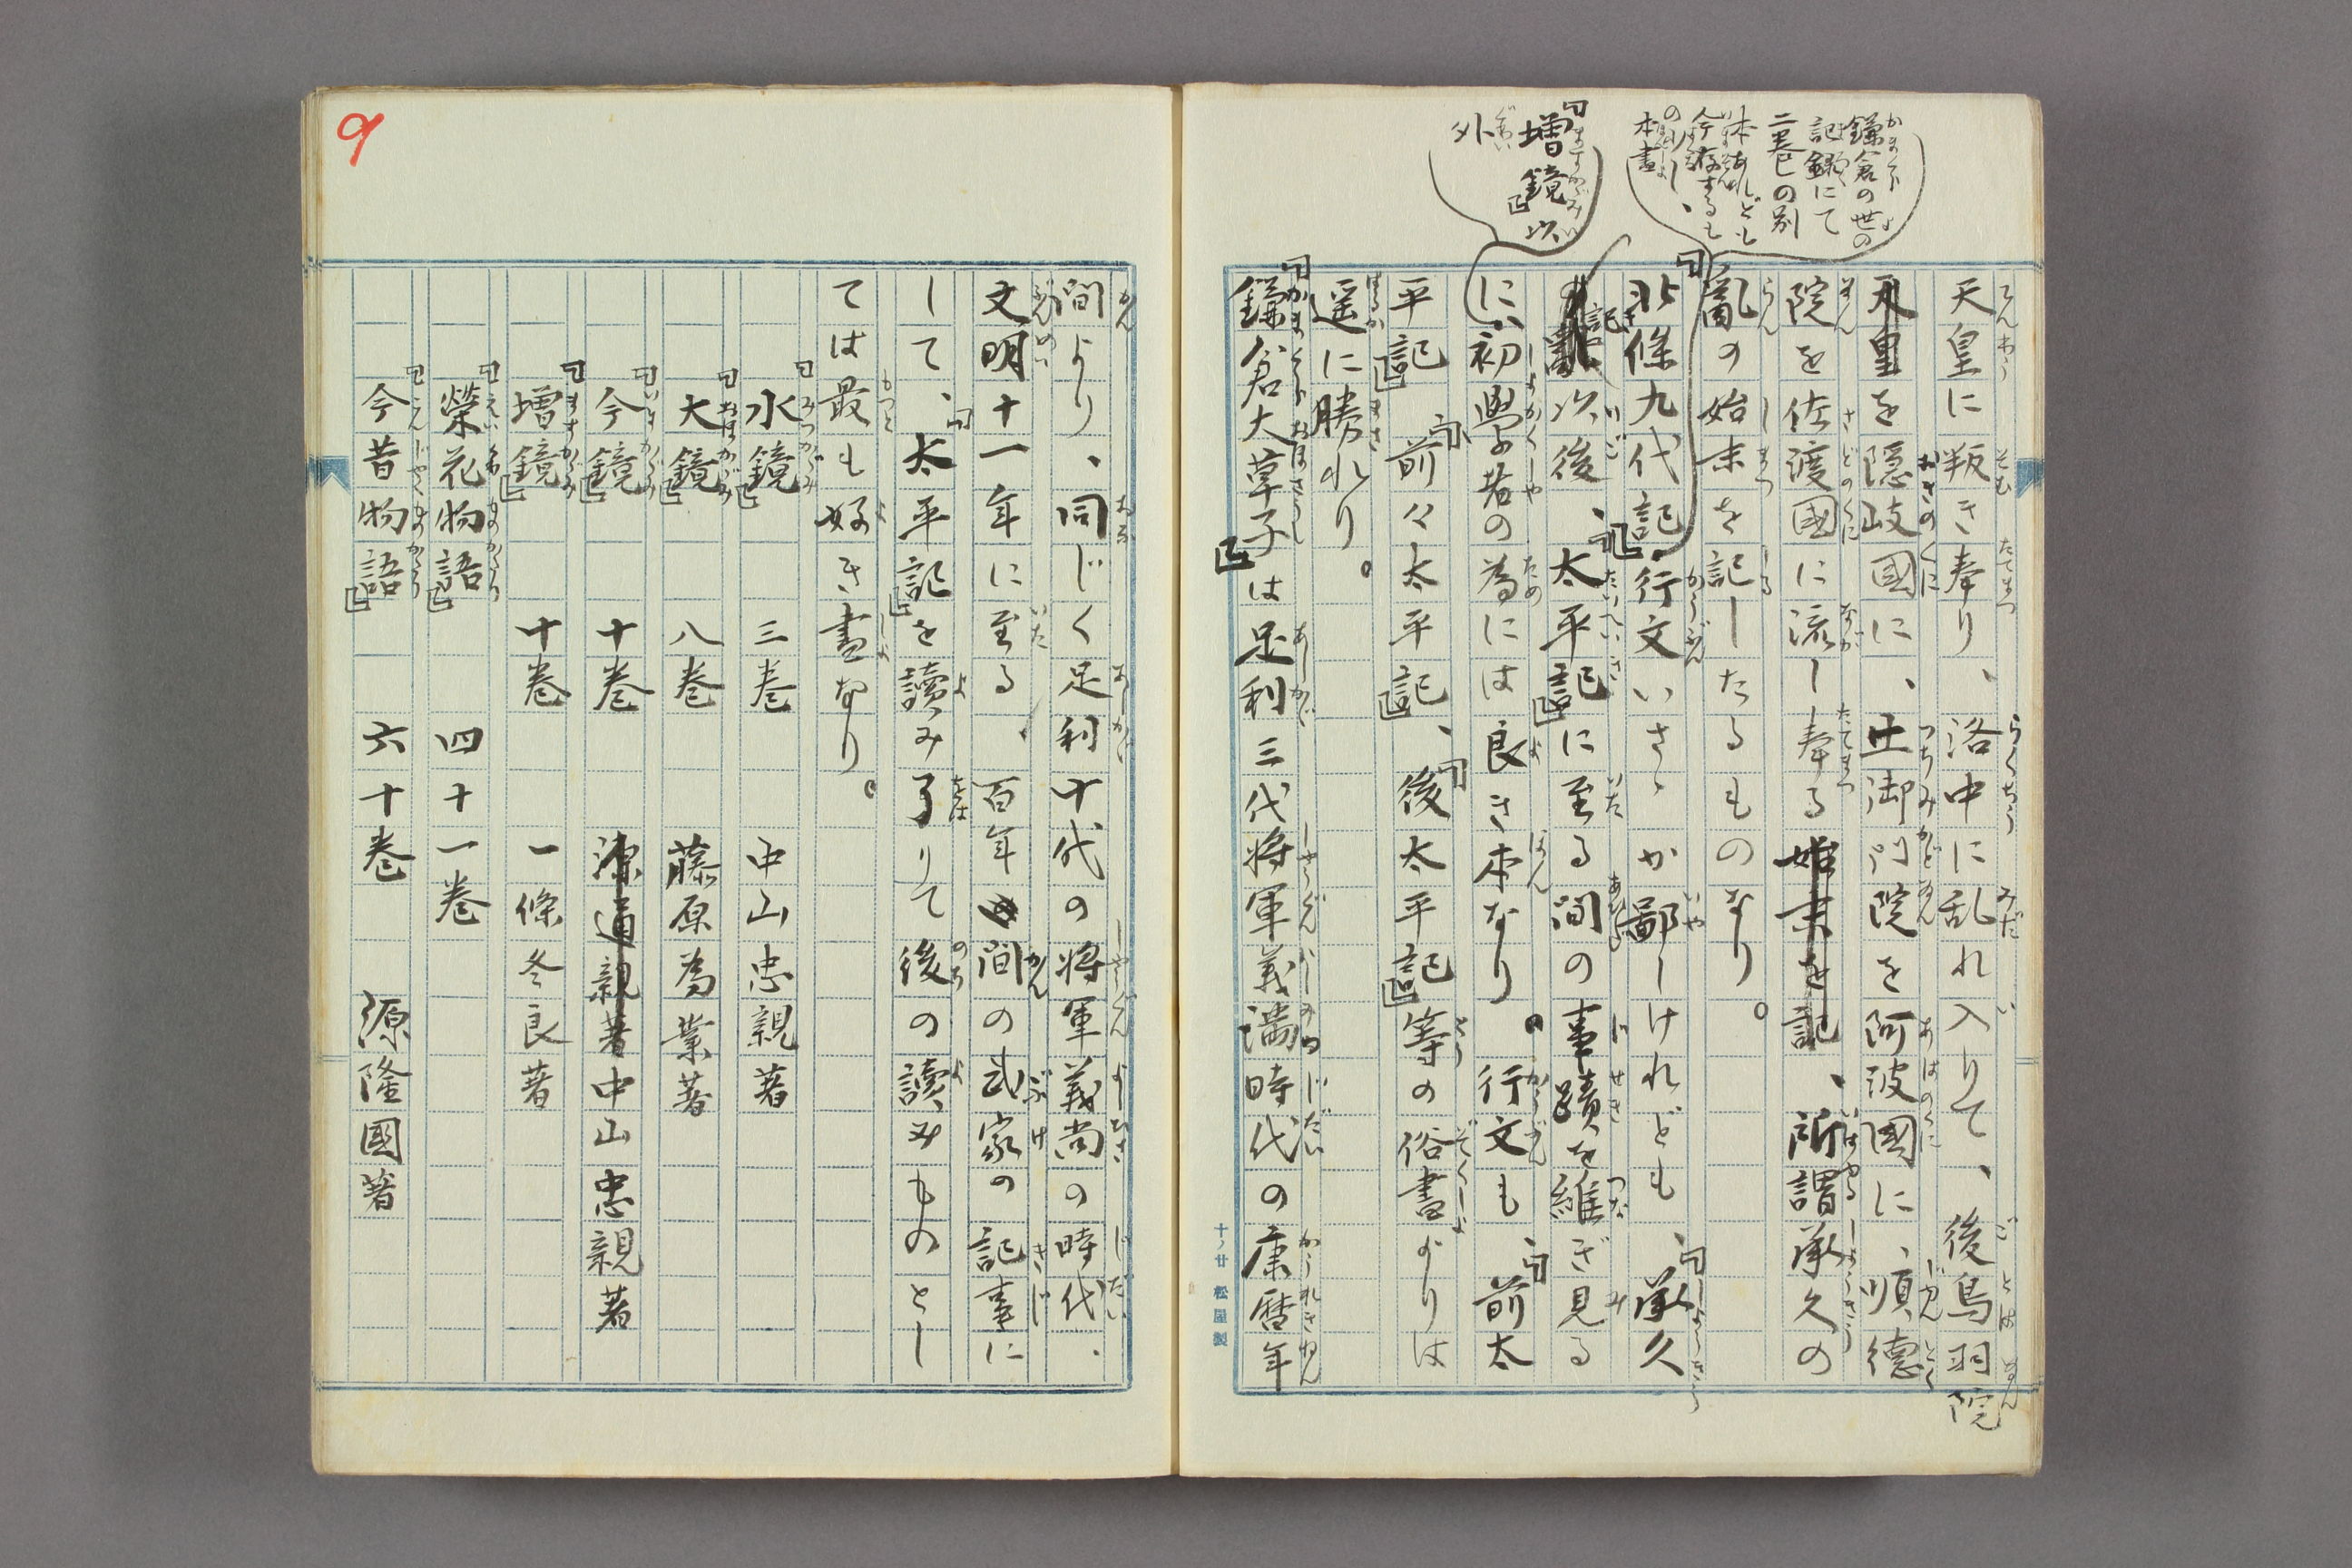 天皇に叛き奉り、洛中に乱れ入りて、後鳥羽院
天皇を隠岐國に、土御門院を阿波國に、順德
院を佐渡國に流し奉る始末を記、所謂承久の
亂の始末を記したるものなり。
鎌倉の世の
記録にて
二巻の別
本あれども
今存するも
本書
「北條九代記」行文いさゝか鄙しけれども、「承久
記」以後、「太平記」に至る間の事蹟を維ぎ見る
増鏡」以
外
に、初學者の為には良き本なり。行文も「前太
平記」「前々太平記」、「後太平記」等の俗書よりは
遥に勝れり。
「鎌倉大草子」は足利三代将軍義満時代の康暦年
十ノ廿 松屋製
9
間より、同じく足利十代の将軍義尚の時代、
文明十一年に至る、百年間の武家の記事に
して、「太平記」を讀み了りて後の讀みものとし
ては最も好き書なり。
「水鏡」 三巻 中山忠親著
「大鏡」 八巻 藤原為業著
「今鏡」 十巻 源通親著中山忠親著
「増鏡」 十巻 一條冬良著
「榮花物語」 四十一巻
「今昔物語」 六十巻 源隆國著